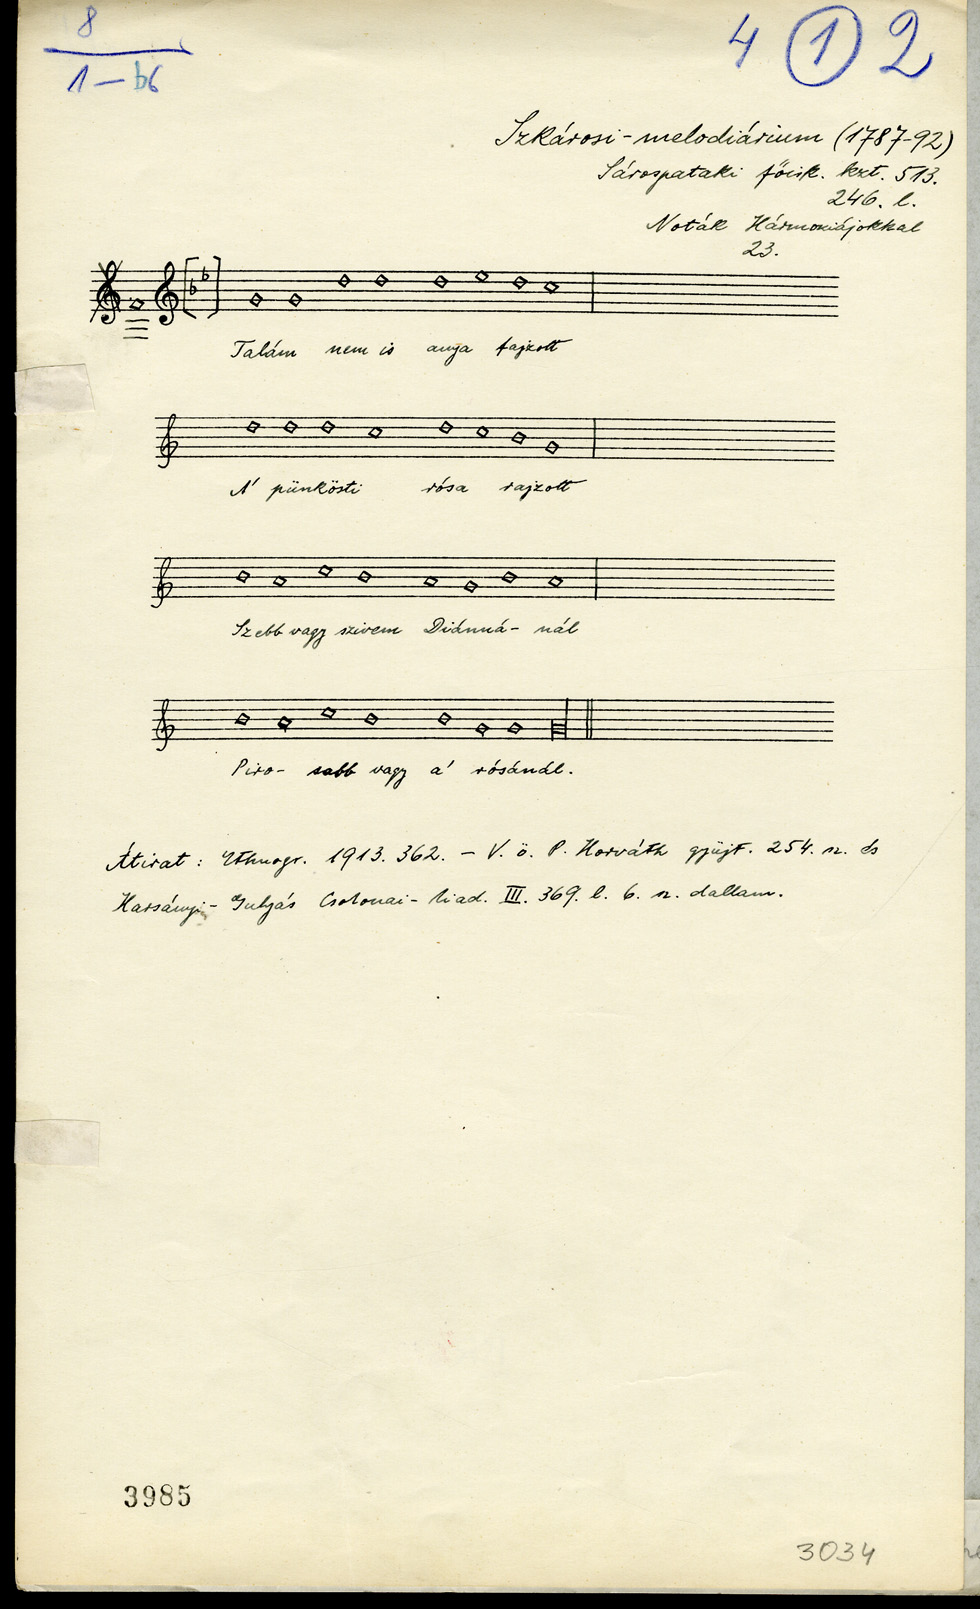 8
1 – b6
4 1 2
Szkárosi-melodiárium (1787-92)
Sárospataki főisk. kzt. 513.
246. l.
Noták Hármoniájokkal
23.
Talám nem is anya fajzott
A' pünkösti rósa rajzott
Szebb vagy szivem Diánná- nál
Piro- sabb vagy a' rósánál.
Átirat: Ethnogr. 1913. 362. – V. ö. P. Horváth gyüjt. 254. sz. és
Harsányi- Gulyás Csokonai- kiad. III. 369. l. 6. sz. dallam.
3985
3034